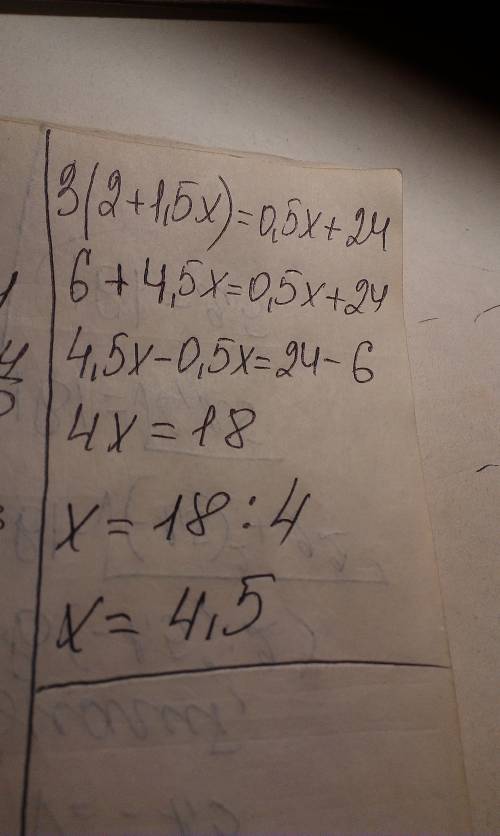 3(2+1,5x)=0,5x+24
6+4,5x=0,5x+24
4,5x-0,5x=24-6
4x=18
x=18:4
x=4,5